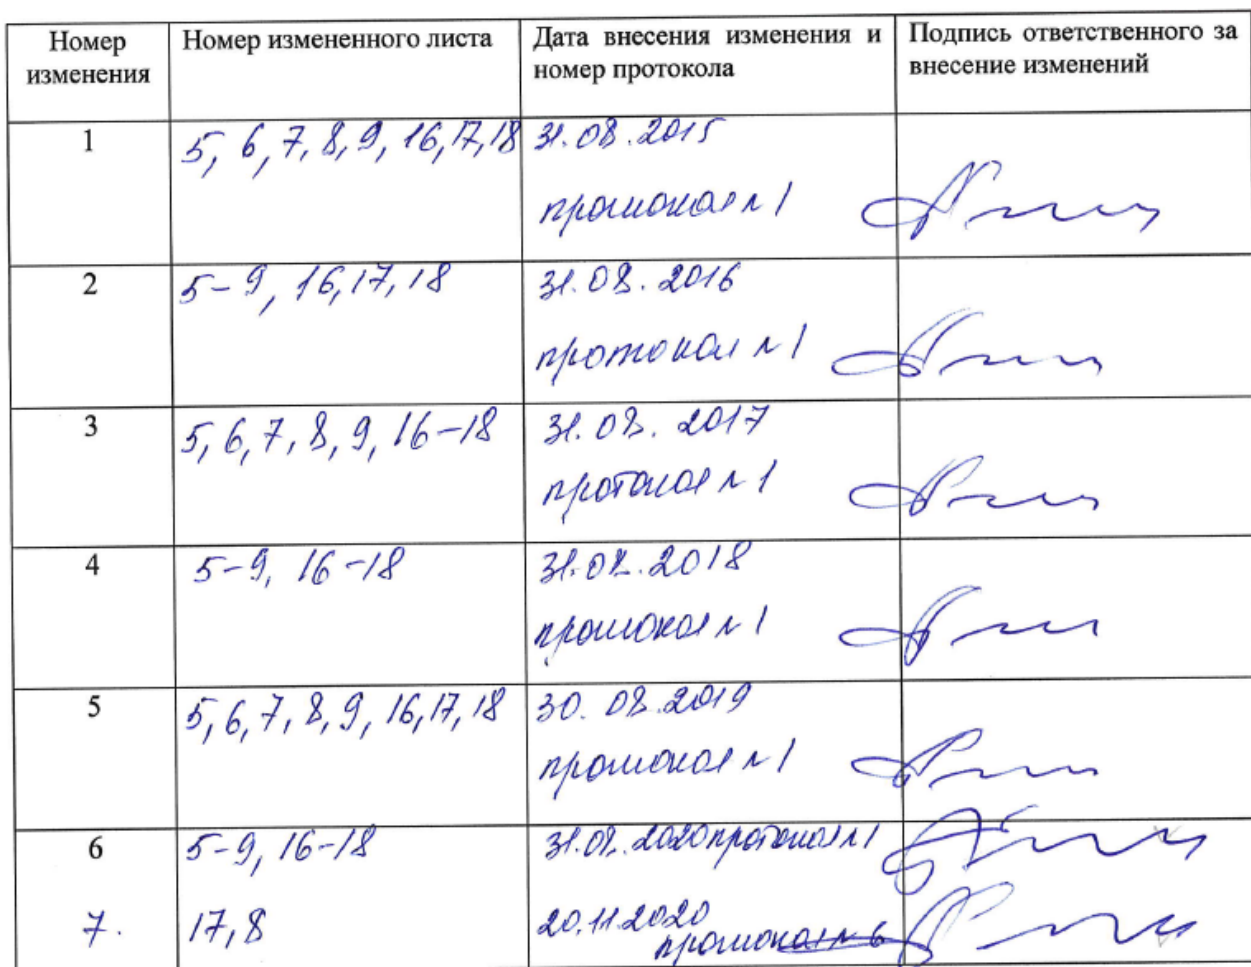 Номер изменения
Номер измененного листа
Дата внесения изменения и номер протокола
Подпись ответственного за внесение изменений
1
5, 6, 7, 8, 9, 16, 17, 18
31.08.2015
протокол №1
2
5-9, 16, 17, 18
31.08.2016
протокол №1
3
5, 6, 7, 8, 9, 16-18
31.08.2017
протокол №1
4
5-9, 16-18
31.08.2018
протокол №1
5
5, 6, 7, 8, 9, 16, 17, 18
30.08.2019
протокол №1
6
5-9, 16-18
31.08.2020 протокол №1
7.
17, 8
20.11.2020
протокол №6